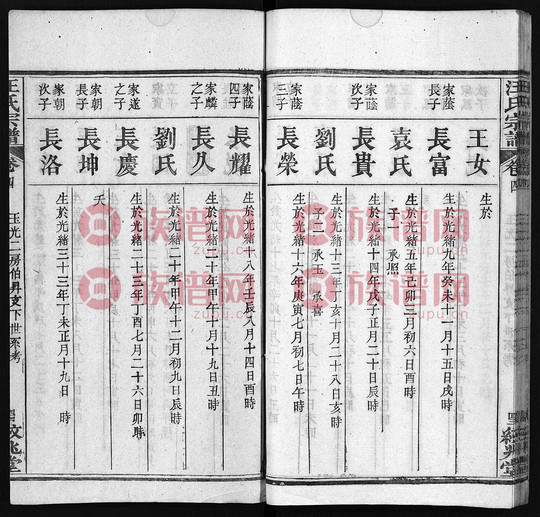 汪氏宗譜
卷四
王女
生於
家蔭
長子
長富
生於光緒九年癸未十一月十五日戌時
袁氏
生於光緒五年己卯三月初六日酉時
子一 承照
家蔭
次子
長貴
生於光緒十四年戊子正月二十日辰時
劉氏
生於光緒十三年丁亥十月二十八日亥時
子二 承玉 承喜
家蔭
三子
長榮
生於光緒十六年庚寅七月初七日午時
家蔭
四子
長耀
生於光緒十八年壬辰八月十四日酉時
家麟
之子
長久
生於光緒二十年甲午十月十九日丑時
劉氏
生於光緒二十年甲午十二月初九日辰時
家遂
之子
長慶
生於光緒二十三年丁酉七月二十六日卯時
家朝
長子
長坤
夭
家朝
次子
長洛
生於光緒三十三年丁未正月十九日 時
汪氏宗譜
卷四
玉光二房伯昇支下世系考
族谱网
zupu.cn
族谱网
zupu.cn
族谱网
zupu.cn
族谱网
zupu.cn